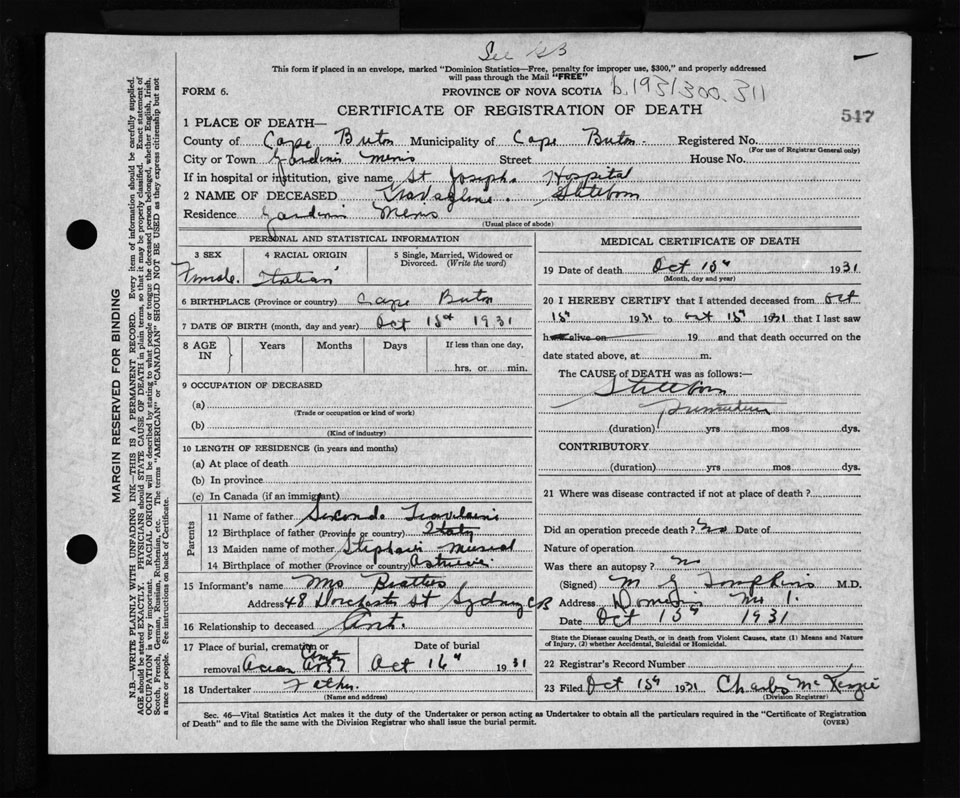 See SB
This form if placed in an envelope, marked "Dominion Statistics—Free, penalty for improper use, $300," and properly addressed
will pass through the Mail "FREE"
FORM 6. PROVINCE OF NOVA SCOTIA b.1931.300.311
CERTIFICATE OF REGISTRATION OF DEATH 517
1 PLACE OF DEATH—
County of Cape Breton Municipality of Cape Breton Registered No.
(For use of Registrar General only)
City or Town Gardiner Mines Street House No.
If in hospital or institution, give name St Joseph Hospital
2 NAME OF DECEASED Stillborn
Residence Gardiner Mines
(Usual place of abode)
PERSONAL AND STATISTICAL INFORMATION
3 SEX 4 RACIAL ORIGIN 5 Single, Married, Widowed or Divorced. (Write the word)
Female Italian
6 BIRTHPLACE (Province or country) Cape Breton
7 DATE OF BIRTH (month, day and year) Oct 15th 1931
8 AGE IN Years Months Days If less than one day, hrs. or min.
9 OCCUPATION OF DECEASED
(a)
(Trade or occupation or kind of work)
(b)
(Kind of industry)
10 LENGTH OF RESIDENCE (in years and months)
(a) At place of death
(b) In province
(c) In Canada (if an immigrant)
Parents
11 Name of father Secondo
12 Birthplace of father (Province or country) Italy
13 Maiden name of mother
14 Birthplace of mother (Province or country)
15 Informant's name Mrs Beattie
Address 48 Dorchester St Sydney CB
16 Relationship to deceased Ant.
17 Place of burial, cremation or removal Date of burial
Oct 16th 1931
18 Undertaker Father
(Name and address)
MEDICAL CERTIFICATE OF DEATH
19 Date of death Oct 15th 1931
(Month, day and year)
20 I HEREBY CERTIFY that I attended deceased from Oct
15th 1931 to Oct 15th 1931 that I last saw
h alive on 19 and that death occurred on the
date stated above, at m.
The CAUSE OF DEATH was as follows:—
Stillborn
(duration) yrs mos dys.
CONTRIBUTORY
(duration) yrs mos dys.
21 Where was disease contracted if not at place of death?
Did an operation precede death? No Date of
Nature of operation
Was there an autopsy? No
(Signed) M G Tompkins M.D.
Address Dominion No 1.
Date Oct 15th 1931
State the Disease causing Death, or in death from Violent Causes, state (1) Means and Nature
of Injury, (2) whether Accidental, Suicidal or Homicidal.
22 Registrar's Record Number
23 Filed Oct 15th 1931 Charles McKenzie
(Division Registrar)
Sec. 46—Vital Statistics Act makes it the duty of the Undertaker or person acting as Undertaker to obtain all the particulars required in the "Certificate of Registration
of Death" and to file the same with the Division Registrar who shall issue the burial permit. (OVER)
MARGIN RESERVED FOR BINDING
N.B.—WRITE PLAINLY WITH UNFADING INK—THIS IS A PERMANENT RECORD. Every item of information should be carefully supplied.
AGE should be stated EXACTLY. PHYSICIANS should STATE CAUSE OF DEATH in plain terms, so that it may be properly classified. Exact statement of
OCCUPATION is very important. RACIAL ORIGIN will be described by stating to what people or tongue the deceased person belonged, whether English, Irish,
Scotch, French, German, Russian, Ruthenian, etc. The terms "AMERICAN" or "CANADIAN" SHOULD NOT BE USED as they express citizenship but not
a race or people. See instructions on back of Certificate.